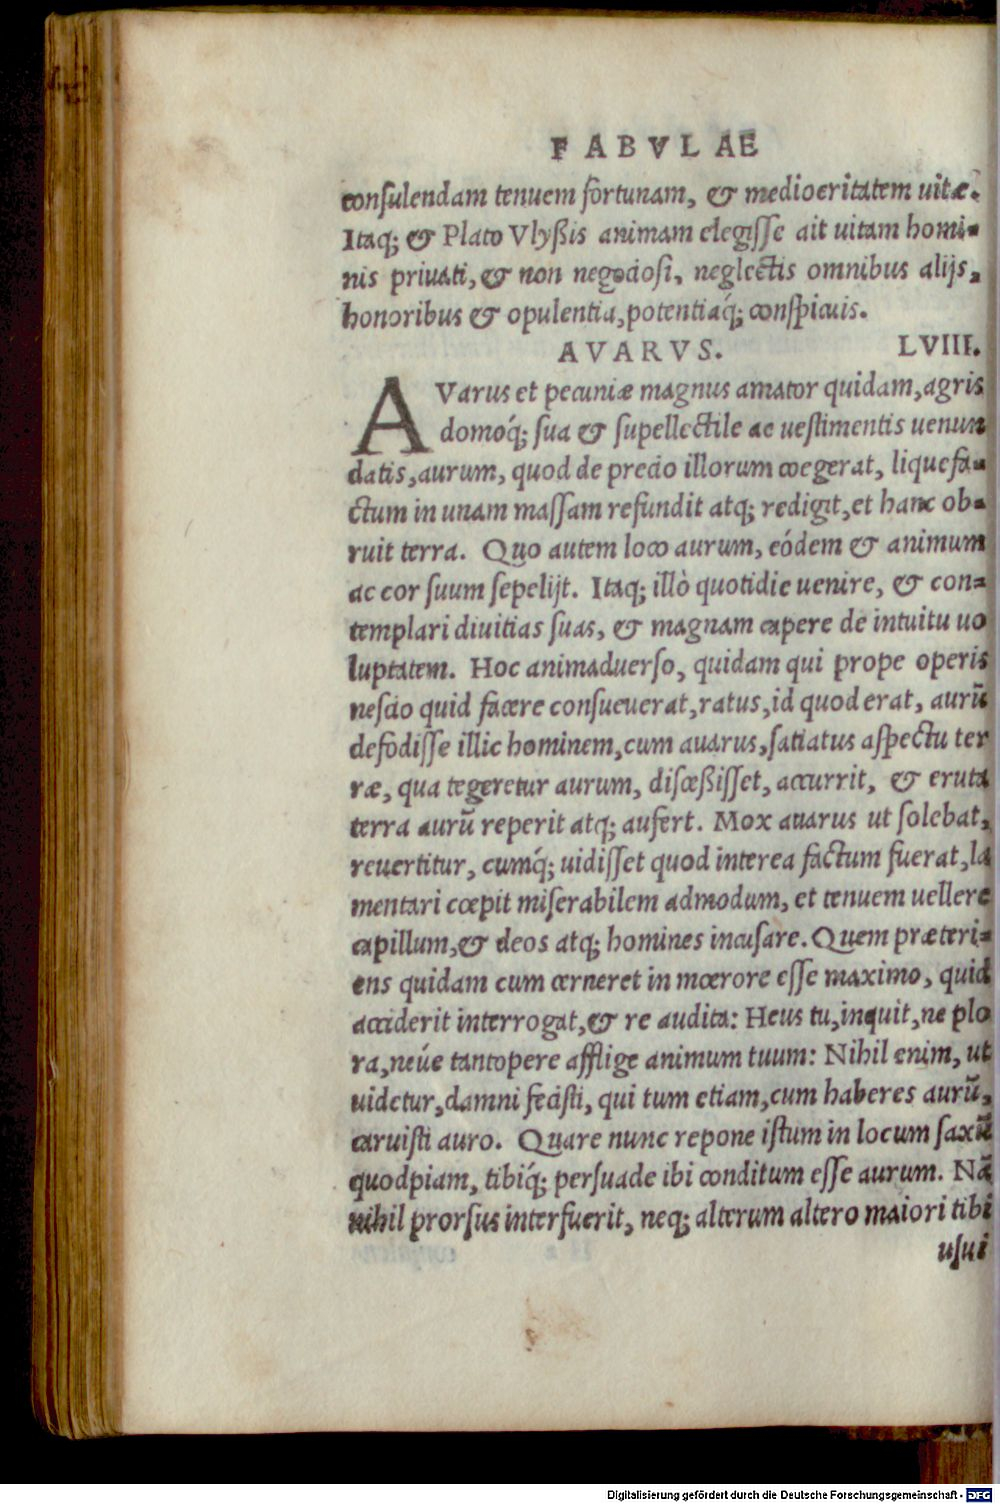 FABVLAE
consulendam tenuem fortunam, & mediocritatem uitæ.
Itaq; & Plato Vlyßis animam elegisse ait uitam homi-
nis priuati, & non negociosi, neglectis omnibus alijs,
honoribus & opulentia, potentiaq́; conspicuis.
AVARVS. LVIII.
AVarus et pecuniæ magnus amator quidam, agris
domoq́; sua & supellectile ac uestimentis uenun
datis, aurum, quod de precio illorum coegerat, liquefa-
ctum in unam massam refundit atq; redigit, et hanc ob-
ruit terra. Quo autem loco aurum, eódem & animum
ac cor suum sepelijt. Itaq; illò quotidie uenire, & con-
templari diuitias suas, & magnam capere de intuitu uo
luptatem. Hoc animaduerso, quidam qui prope operis
nescio quid facere consueuerat, ratus, id quod erat, aurū
defodisse illic hominem, cum auarus, satiatus aspectu ter
ræ, qua tegeretur aurum, disceßisset, accurrit, & eruta
terra aurū reperit atq; aufert. Mox auarus ut solebat,
reuertitur, cumq́; uidisset quod interea factum fuerat, la
mentari cœpit miserabilem admodum, et tenuem uellere
capillum, & deos atq; homines incusare. Quem præteri-
ens quidam cum cerneret in mœrore esse maximo, quid
acciderit interrogat, & re audita: Heus tu, inquit, ne plo
ra, neúe tantopere afflige animum tuum: Nihil enim, ut
uidetur, damni fecisti, qui tum etiam, cum haberes aurū,
caruisti auro. Quare nunc repone istum in locum saxū
quodpiam, tibiq́; persuade ibi conditum esse aurum. Nā
nihil prorsus interfuerit, neq; alterum altero maiori tibi
usui
Digitalisierung gefördert durch die Deutsche Forschungsgemeinschaft - DFG